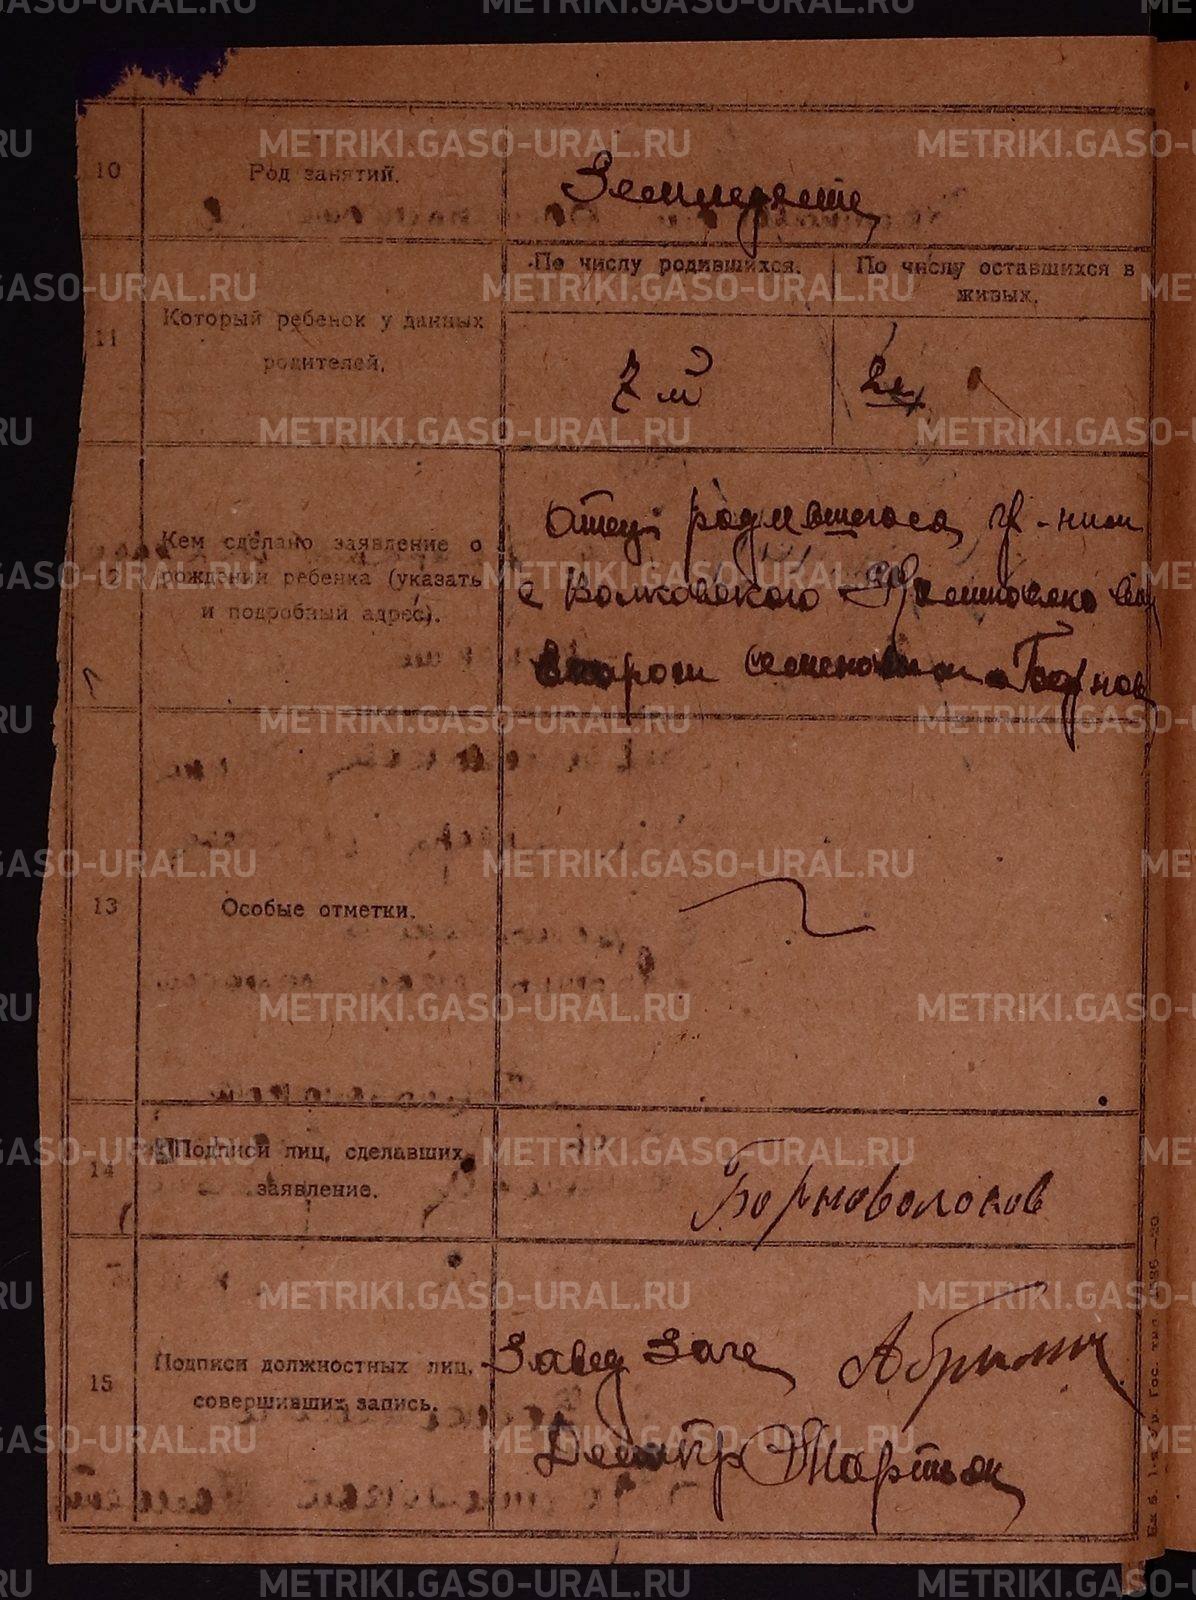 10
Род занятий.
Земледелие
11
Который ребенок у данных
родителей.
По числу родившихся.
По числу оставшихся в
живых.
7 й
2й
12
Кем сделано заявление о
рождении ребенка (указать
и подробный адрес).
Отец родившегося гр-ниم
с Волковского
Семенович
13
Особые отметки.
14
Подписи лиц, сделавших
заявление.
Борноволоков
15
Подписи должностных лиц,
совершивших запись.
Завед Загс
METRIKI.GASO-URAL.RU